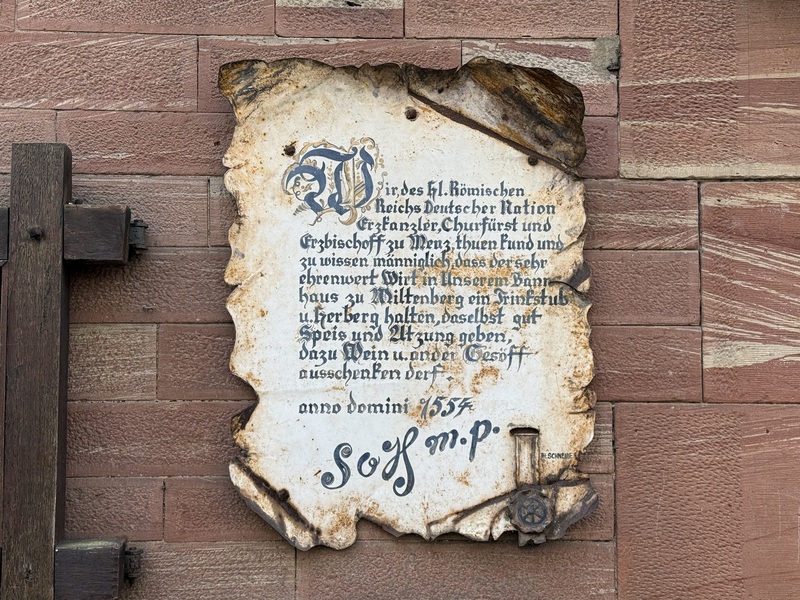 Wir, des Hl. Römischen
Reichs Deutscher Nation
Erzkanzler, Churfürst und
Erzbischoff zu Menz, thuen kund und
zu wissen männiglich, dass der sehr
ehrenwert Wirt in Unserem Bann-
haus zu Miltenberg ein Trinkstub
u. Herberg halten, daselbst gut
Speis und Atzung geben,
dazu Wein u. ander Gesöff
ausschenken derf.
anno domini 1554
m. p.